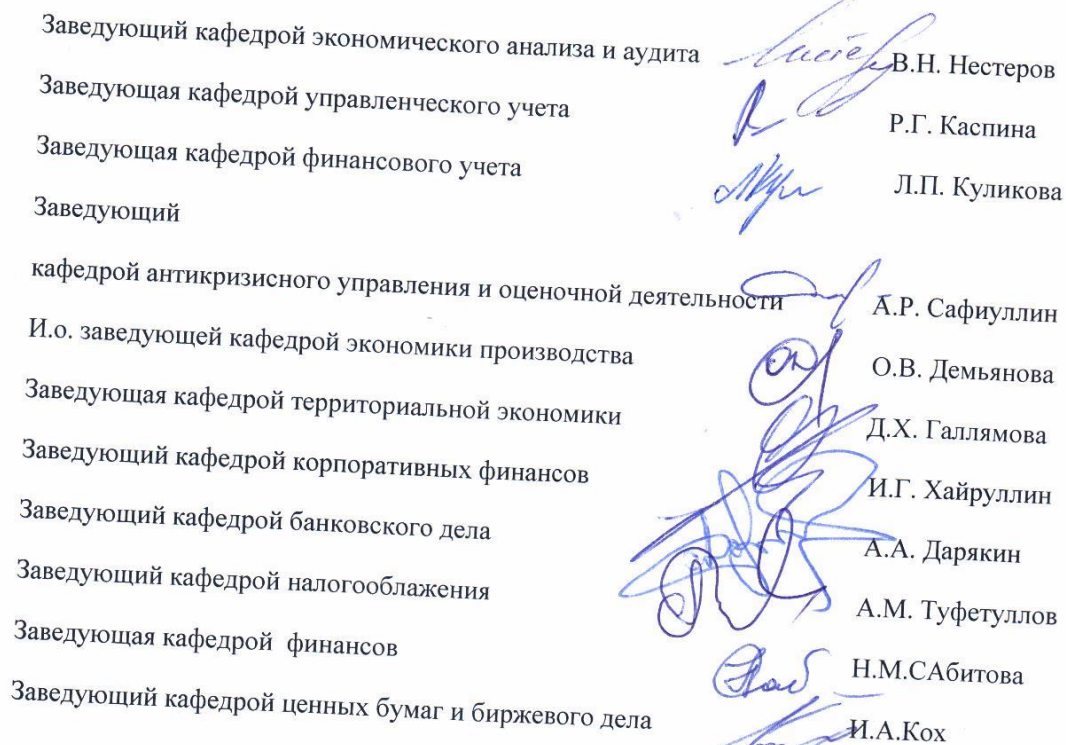 Заведующий кафедрой экономического анализа и аудита В.Н. Нестеров
Заведующая кафедрой управленческого учета Р.Г. Каспина
Заведующая кафедрой финансового учета Л.П. Куликова
Заведующий
кафедрой антикризисного управления и оценочной деятельности А.Р. Сафиуллин
И.о. заведующей кафедрой экономики производства О.В. Демьянова
Заведующая кафедрой территориальной экономики Д.Х. Галлямова
Заведующий кафедрой корпоративных финансов И.Г. Хайруллин
Заведующий кафедрой банковского дела А.А. Дарякин
Заведующий кафедрой налогооблажения А.М. Туфетуллов
Заведующая кафедрой финансов Н.М.САбитова
Заведующий кафедрой ценных бумаг и биржевого дела И.А.Кох